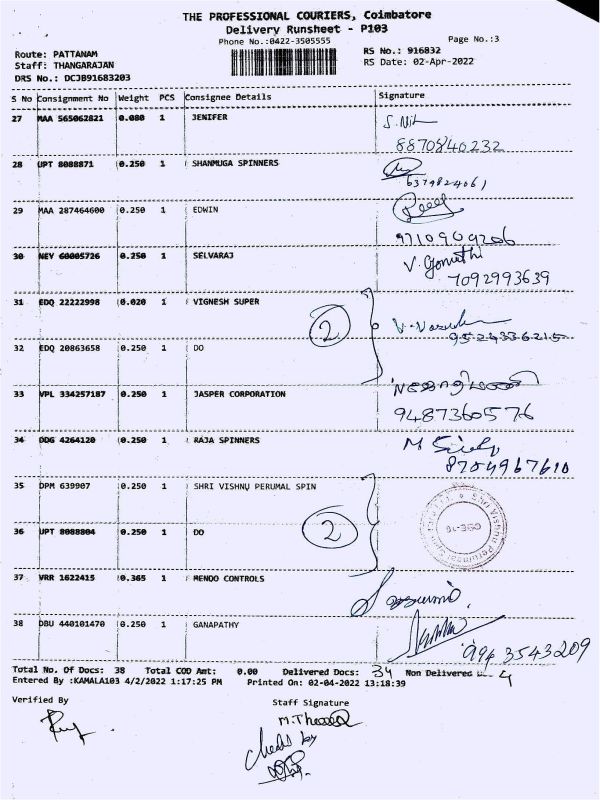 THE PROFESSIONAL COURIERS, Coimbatore
Delivery Runsheet - P103
Phone No.:0422-3505555
Page No.:3
Route: PATTANAM
RS No.: 916832
Staff: THANGARAJAN
RS Date: 02-Apr-2022
DRS No.: DCJB91683203
S No Consignment No Weight PCS Consignee Details Signature
27 MAA 565062821 0.080 1 JENIFER
8870840232
28 UPT 8088871 0.250 1 SHANMUGA SPINNERS
6379824061
29 MAA 287464600 0.250 1 EDWIN
9710909206
30 NEY 60005726 0.250 1 SELVARAJ V. Gomathi
7092993639
31 EDQ 22222998 0.020 1 VIGNESH SUPER
2
9524336215
32 EDQ 20863658 0.250 1 DO
33 VPL 334257187 0.250 1 JASPER CORPORATION
9487360576
34 DDG 4264120 0.250 1 RAJA SPINNERS
8754967610
35 DPM 639907 0.250 1 SHRI VISHNU PERUMAL SPIN
2
36 UPT 8088804 0.250 1 DO
37 VRR 1622415 0.365 1 MENDO CONTROLS
38 DBU 440101470 0.250 1 GANAPATHY
9943543209
Total No. Of Docs: 38 Total COD Amt: 0.00 Delivered Docs: 34 Non Delivered 4
Entered By :KAMALA103 4/2/2022 1:17:25 PM Printed On: 02-04-2022 13:18:39
Verified By
Staff Signature